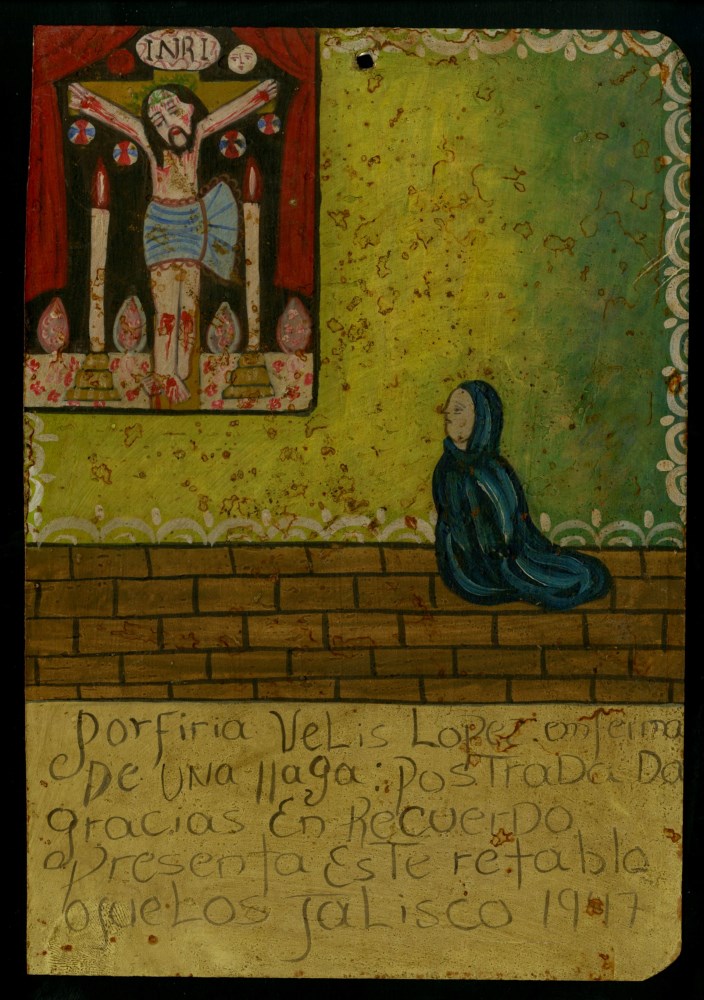 INRI
Porfiria Velis Lopez enferma
De una llaga: postrada Da
gracias En Recuerdo
apresenta Este retablo
ojuelos Jalisco 1947